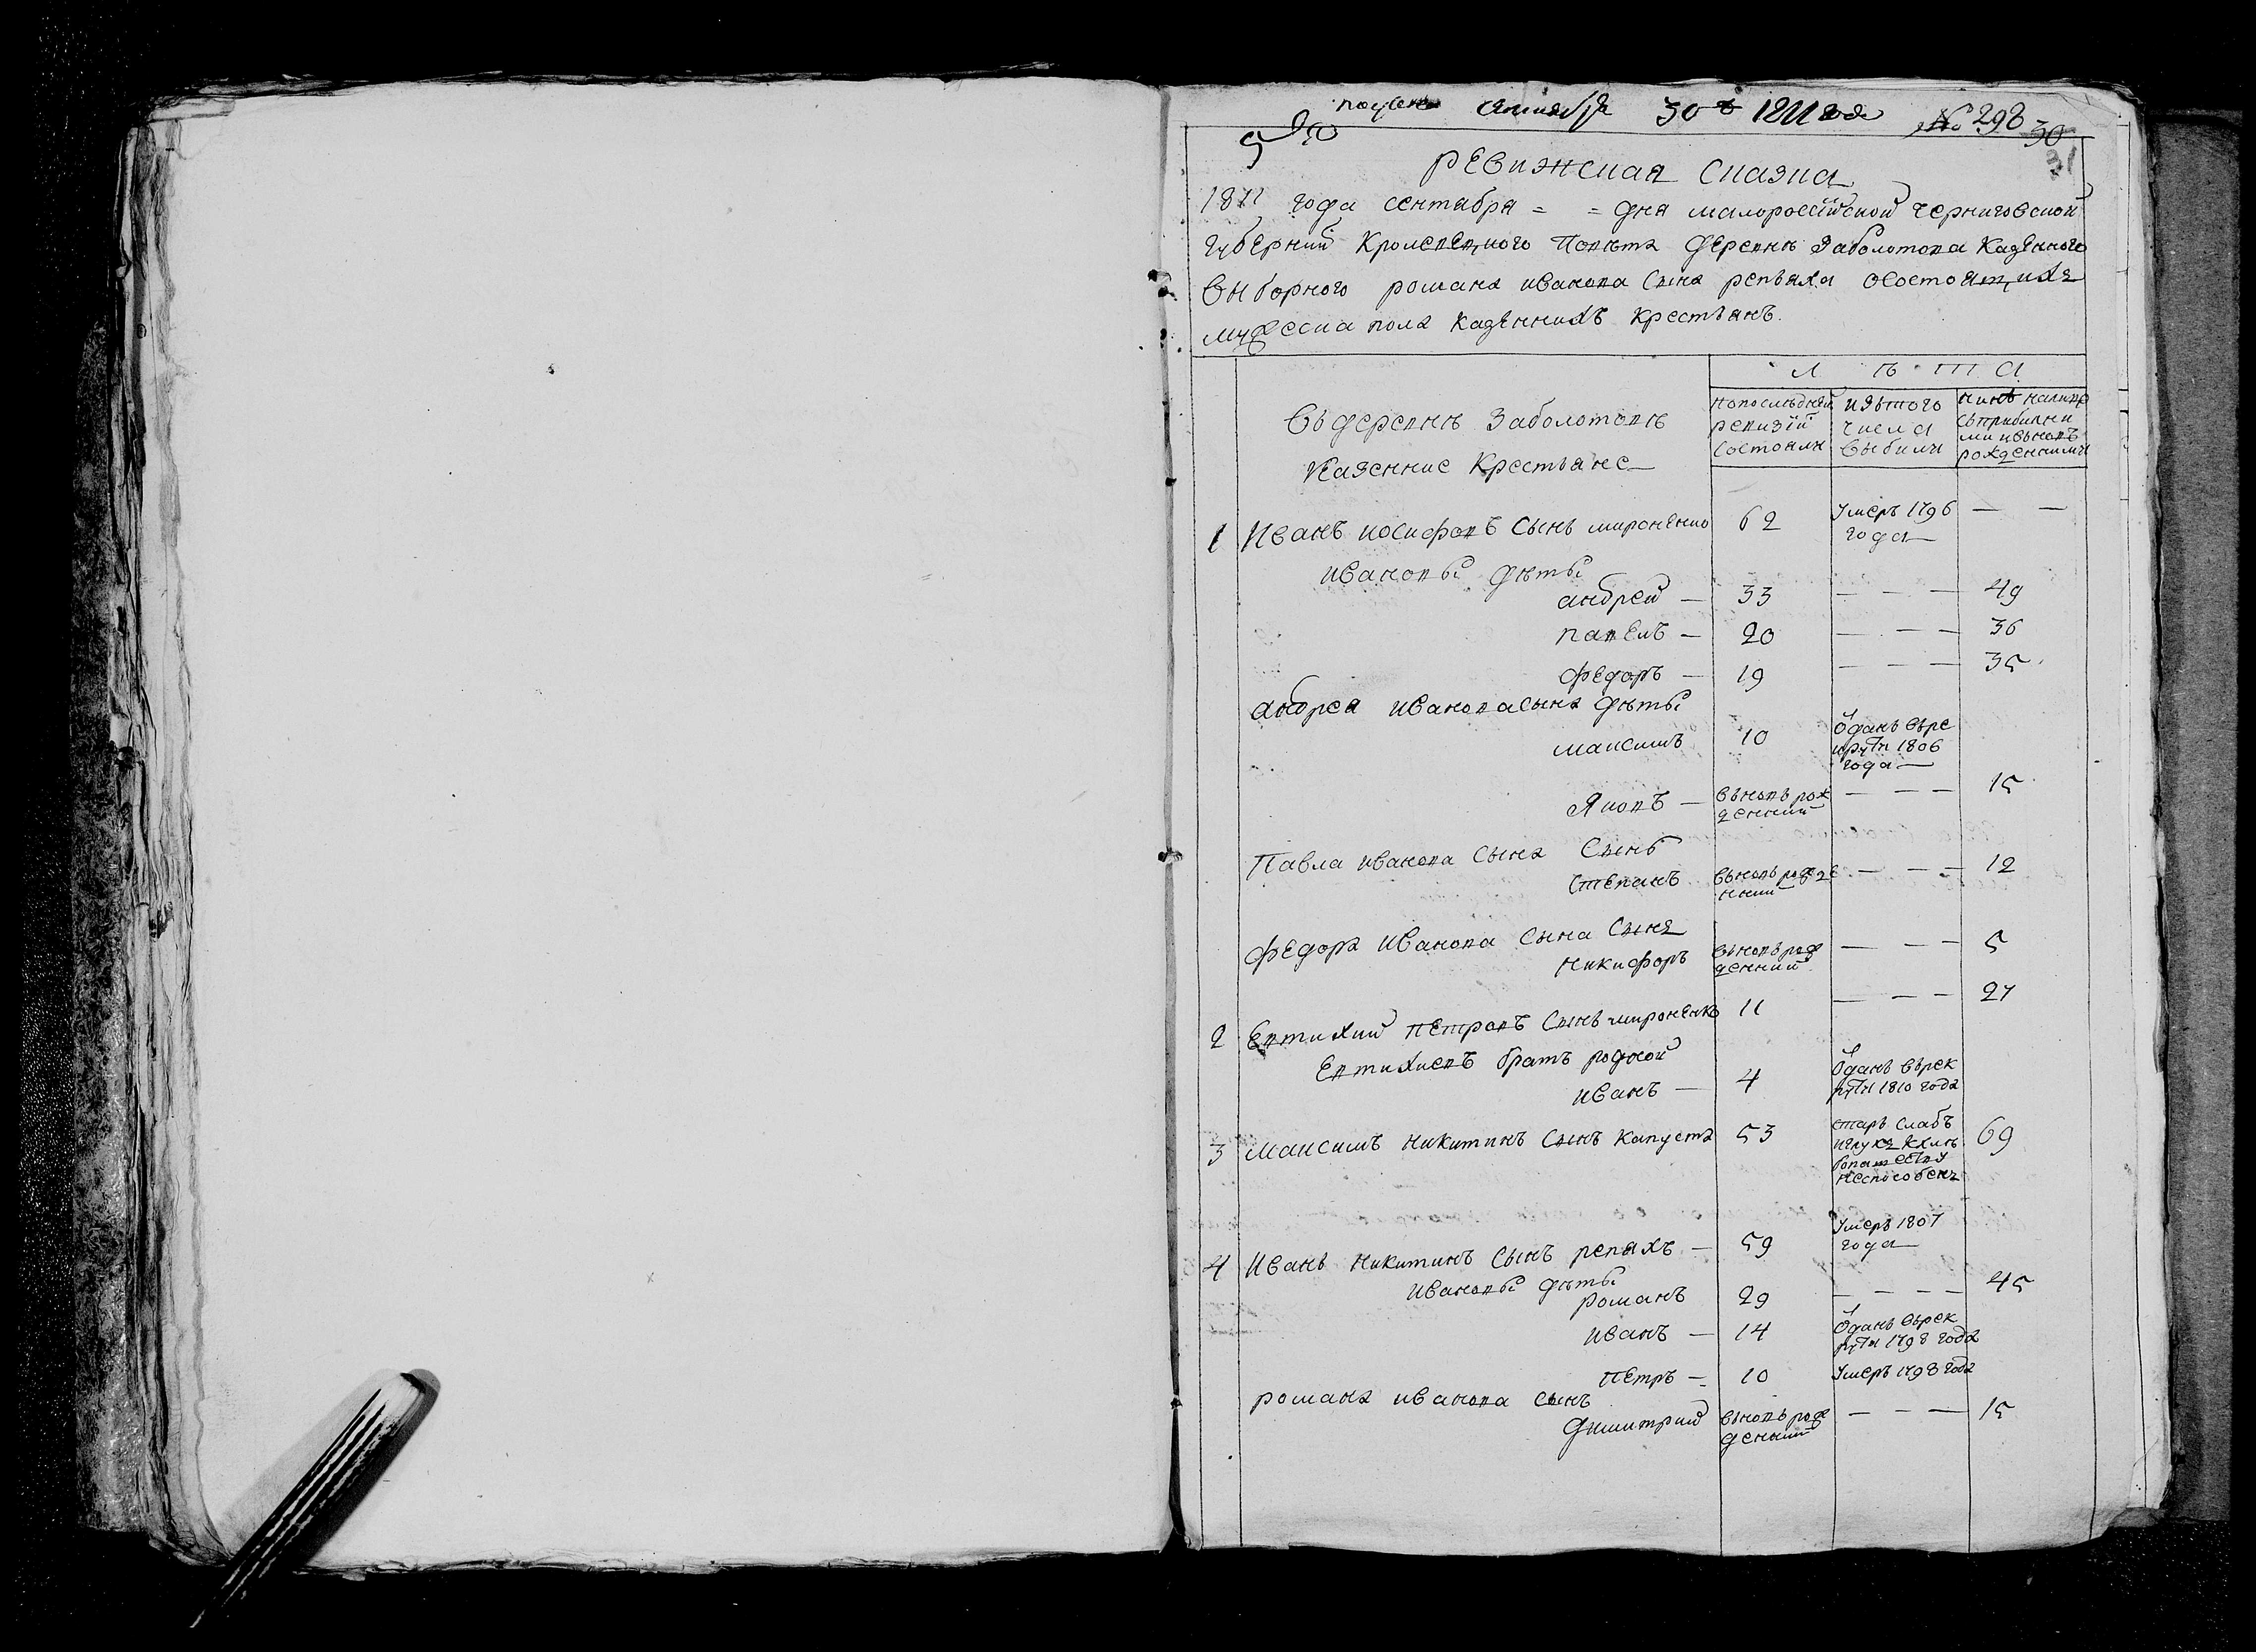 получена сентября 30 д 1811 года
№ 298
30
31
РЕВИЖСКАЯ СКАЗКА
1811 года сентября = = дня малороссійской Черниговской
губерніи Кролевецкого Повѣта Деревнѣ Заболотова Казенного
выборного романа иванова сына репьяха осостоящихъ
мужеска пола казенныхъ крестьянъ.
Л Ѣ Т А
Въ деревнѣ Заболотовѣ
Казенние Крестьяне
Попослѣдней
ревизіи
состояли
изътого
числа
выбыли
нинѣ налицо
сприбилии
ми ивьновъ
рожденними
1 Иванъ иосифовъ сынъ мироненко 62 Умеръ 1796
года — —
ивановы дѣты
андрей — 33 — — — 49
павелъ — 20 — — — 36
федоръ — 19 — — — 35
андрея иванова сына дѣты
максимъ 10 Ѿданъ върекруты 1806
года
Яковъ — вьновь рож
денний — — — 15
Павла иванова сына Сынъ
степанъ вьновь рожде
нний — — — 12
федора иванова сына сынъ
никифоръ вьновь рож
денний — — — 5
2 Евтихий петровъ сынъ мироненко 11 — — — 27
Евтихиевъ братъ родной
иванъ — 4 Ѿданъ върек
руты 1810 года
3 максимъ никитинъ сынъ капуста 53 старъ слабъ
69
неспособенъ
4 Иванъ никитинъ сынъ репяхъ — 59 Умеръ 1807
года
ивановы дѣты
романъ 29 — — — — 45
иванъ — 14 Ѿданъ върек
руты 1798 года
петръ — 10 Умеръ 1798 года
романа иванова сынъ
димитрий вьновь рож
денний — — — 15